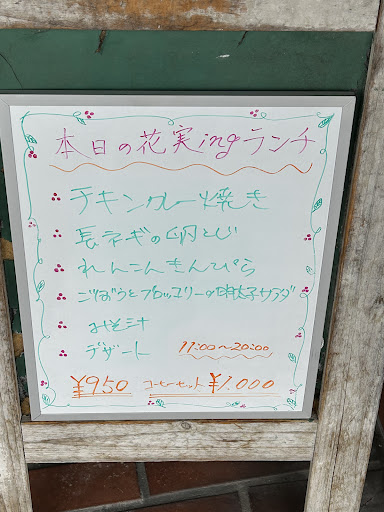 本日の花実ingランチ
チキンカレー焼き
長ネギの卵とじ
れんこんきんぴら
ごぼうとブロッコリーの明太子サラダ
みそ汁
デザート 11:00〜20:00
¥950 コーヒーセット ¥1.000